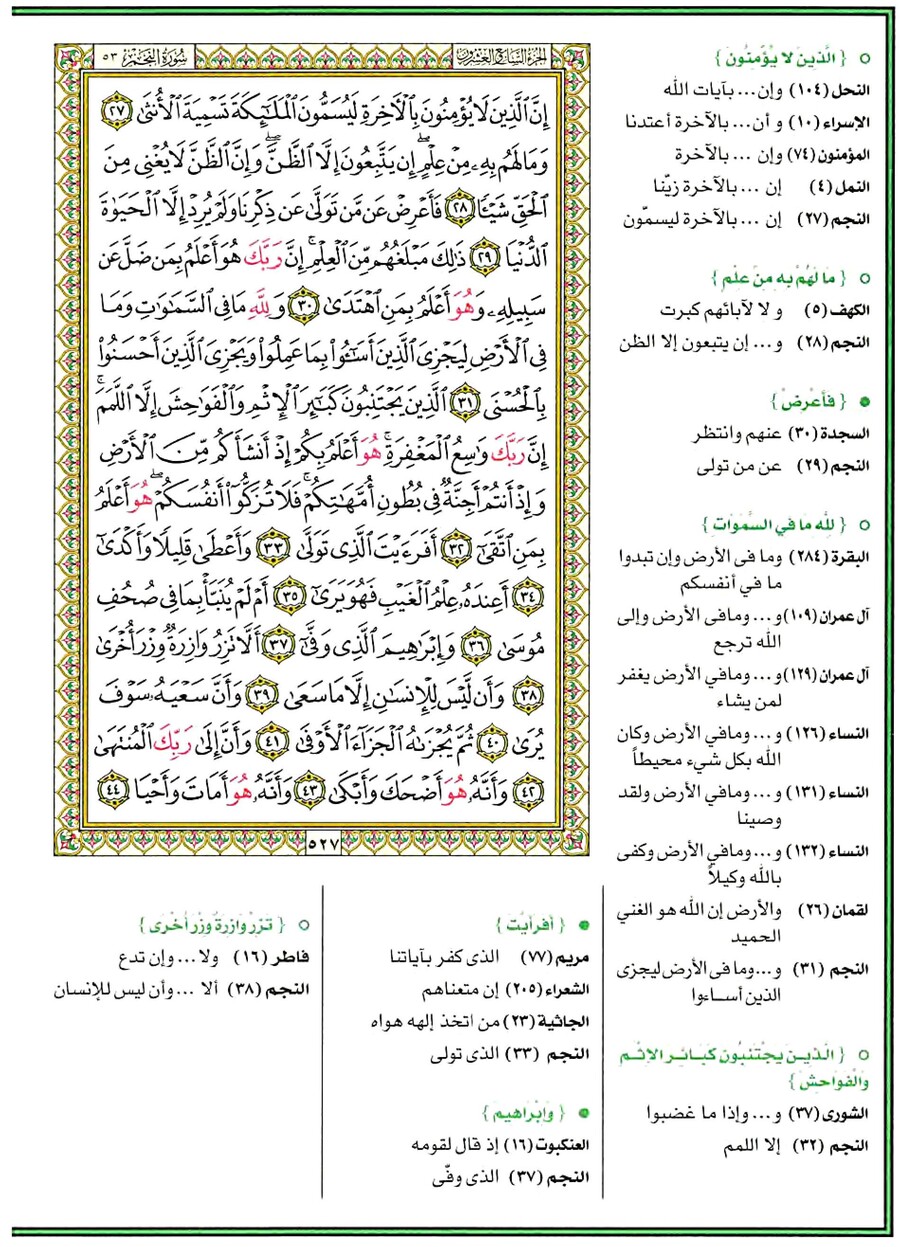 الجزء السابع والعشرون
سورة النجم ٥٣
إِنَّ ٱلَّذِينَ لَا يُؤْمِنُونَ بِٱلْءَاخِرَةِ لَيُسَمُّونَ ٱلْمَلَٰٓئِكَةَ تَسْمِيَةَ ٱلْأُنثَىٰ ٢٧
وَمَا لَهُم بِهِۦ مِنْ عِلْمٍ ۖ إِن يَتَّبِعُونَ إِلَّا ٱلظَّنَّ ۖ وَإِنَّ ٱلظَّنَّ لَا يُغْنِى مِنَ
ٱلْحَقِّ شَيْـًٔا ٢٨ فَأَعْرِضْ عَن مَّن تَوَلَّىٰ عَن ذِكْرِنَا وَلَمْ يُرِدْ إِلَّا ٱلْحَيَوٰةَ
ٱلدُّنْيَا ٢٩ ذَٰلِكَ مَبْلَغُهُم مِّنَ ٱلْعِلْمِ ۚ إِنَّ رَبَّكَ هُوَ أَعْلَمُ بِمَن ضَلَّ عَن
سَبِيلِهِۦ وَهُوَ أَعْلَمُ بِمَنِ ٱهْتَدَىٰ ٣٠ وَلِلَّهِ مَا فِى ٱلسَّمَٰوَٰتِ وَمَا
فِى ٱلْأَرْضِ لِيَجْزِىَ ٱلَّذِينَ أَسَٰٓـُٔوا۟ بِمَا عَمِلُوا۟ وَيَجْزِىَ ٱلَّذِينَ أَحْسَنُوا۟
بِٱلْحُسْنَى ٣١ ٱلَّذِينَ يَجْتَنِبُونَ كَبَٰٓئِرَ ٱلْإِثْمِ وَٱلْفَوَٰحِشَ إِلَّا ٱللَّمَمَ ۚ
إِنَّ رَبَّكَ وَٰسِعُ ٱلْمَغْفِرَةِ ۚ هُوَ أَعْلَمُ بِكُمْ إِذْ أَنشَأَكُم مِّنَ ٱلْأَرْضِ
وَإِذْ أَنتُمْ أَجِنَّةٌ فِى بُطُونِ أُمَّهَٰتِكُمْ ۖ فَلَا تُزَكُّوٓا۟ أَنفُسَكُمْ ۖ هُوَ أَعْلَمُ
بِمَنِ ٱتَّقَىٰٓ ٣٢ أَفَرَءَيْتَ ٱلَّذِى تَوَلَّىٰ ٣٣ وَأَعْطَىٰ قَلِيلًا وَأَكْدَىٰٓ
٣٤ أَعِندَهُۥ عِلْمُ ٱلْغَيْبِ فَهُوَ يَرَىٰٓ ٣٥ أَمْ لَمْ يُنَبَّأْ بِمَا فِى صُحُفِ
مُوسَىٰ ٣٦ وَإِبْرَٰهِيمَ ٱلَّذِى وَفَّىٰٓ ٣٧ أَلَّا تَزِرُ وَازِرَةٌ وِزْرَ أُخْرَىٰ
٣٨ وَأَن لَّيْسَ لِلْإِنسَٰنِ إِلَّا مَا سَعَىٰ ٣٩ وَأَنَّ سَعْيَهُۥ سَوْفَ
يُرَىٰ ٤٠ ثُمَّ يُجْزَىٰهُ ٱلْجَزَآءَ ٱلْأَوْفَىٰ ٤١ وَأَنَّ إِلَىٰ رَبِّكَ ٱلْمُنتَهَىٰ
٤٢ وَأَنَّهُۥ هُوَ أَضْحَكَ وَأَبْكَىٰ ٤٣ وَأَنَّهُۥ هُوَ أَمَاتَ وَأَحْيَا ٤٤
٥٢٧
○ { الَّذِينَ لَا يُؤْمِنُونَ }
النحل (١٠٤) وإن... بآيات الله
الإسراء (١٠) و أن... بالآخرة أعتدنا
المؤمنون (٧٤) وإن ... بالآخرة
النمل (٤) إن ... بالآخرة زيّنا
النجم (٢٧) إن ... بالآخرة ليسمّون
○ { مَا لَهُمْ بِهِ مِنْ عِلْمٍ }
الكهف (٥) و لا لآبائهم كبرت
النجم (٢٨) و... إن يتبعون إلا الظن
● { فَأَعْرِضْ }
السجدة (٣٠) عنهم وانتظر
النجم (٢٩) عن من تولى
○ { لِلَّهِ مَا فِي السَّمَوَاتِ }
البقرة (٢٨٤) وما فى الأرض وإن تبدوا
ما في أنفسكم
آل عمران (١٠٩) و... ومافى الأرض وإلى
الله ترجع
آل عمران (١٢٩) و... ومافي الأرض يغفر
لمن يشاء
النساء (١٢٦) و... ومافي الأرض وكان
الله بكل شيء محيطاً
النساء (١٣١) و... ومافي الأرض ولقد
وصينا
النساء (١٣٢) و...ومافي الأرض وكفى
بالله وكيلاً
لقمان (٢٦) والأرض إن الله هو الغني
الحميد
النجم (٣١) و...وما فى الأرض ليجزى
الذين أساءوا
○ { الَّذِينَ يَجْتَنِبُونَ كَبَائِرَ الإِثْمِ
وَالْفَوَاحِشَ }
الشورى (٣٧) و... وإذا ما غضبوا
النجم (٣٢) إلا اللمم
● { أَفَرَأَيْتَ }
مريم (٧٧) الذى كفر بآياتنا
الشعراء (٢٠٥) إن متعناهم
الجاثية (٢٣) من اتخذ إلهه هواه
النجم (٣٣) الذى تولى
● { وَإِبْرَاهِيمَ }
العنكبوت (١٦) إذ قال لقومه
النجم (٣٧) الذى وفّى
○ { تَزِرُ وَازِرَةٌ وِزْرَ أُخْرَى }
فاطر (١٦) ولا... وإن تدع
النجم (٣٨) ألا ...وأن ليس للإنسان